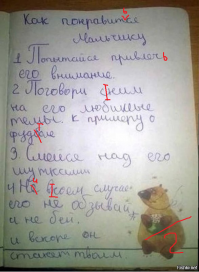 Как понравится
мальчику
1 Попытайся привлечь
его внимание.
2 Поговори с ним
на его любимые
темы к примеру о
3 Смейся над его
шутками
4 Ни в коем случае
его не обзывай
и не бей.
и вскоре он
станет твоим
2